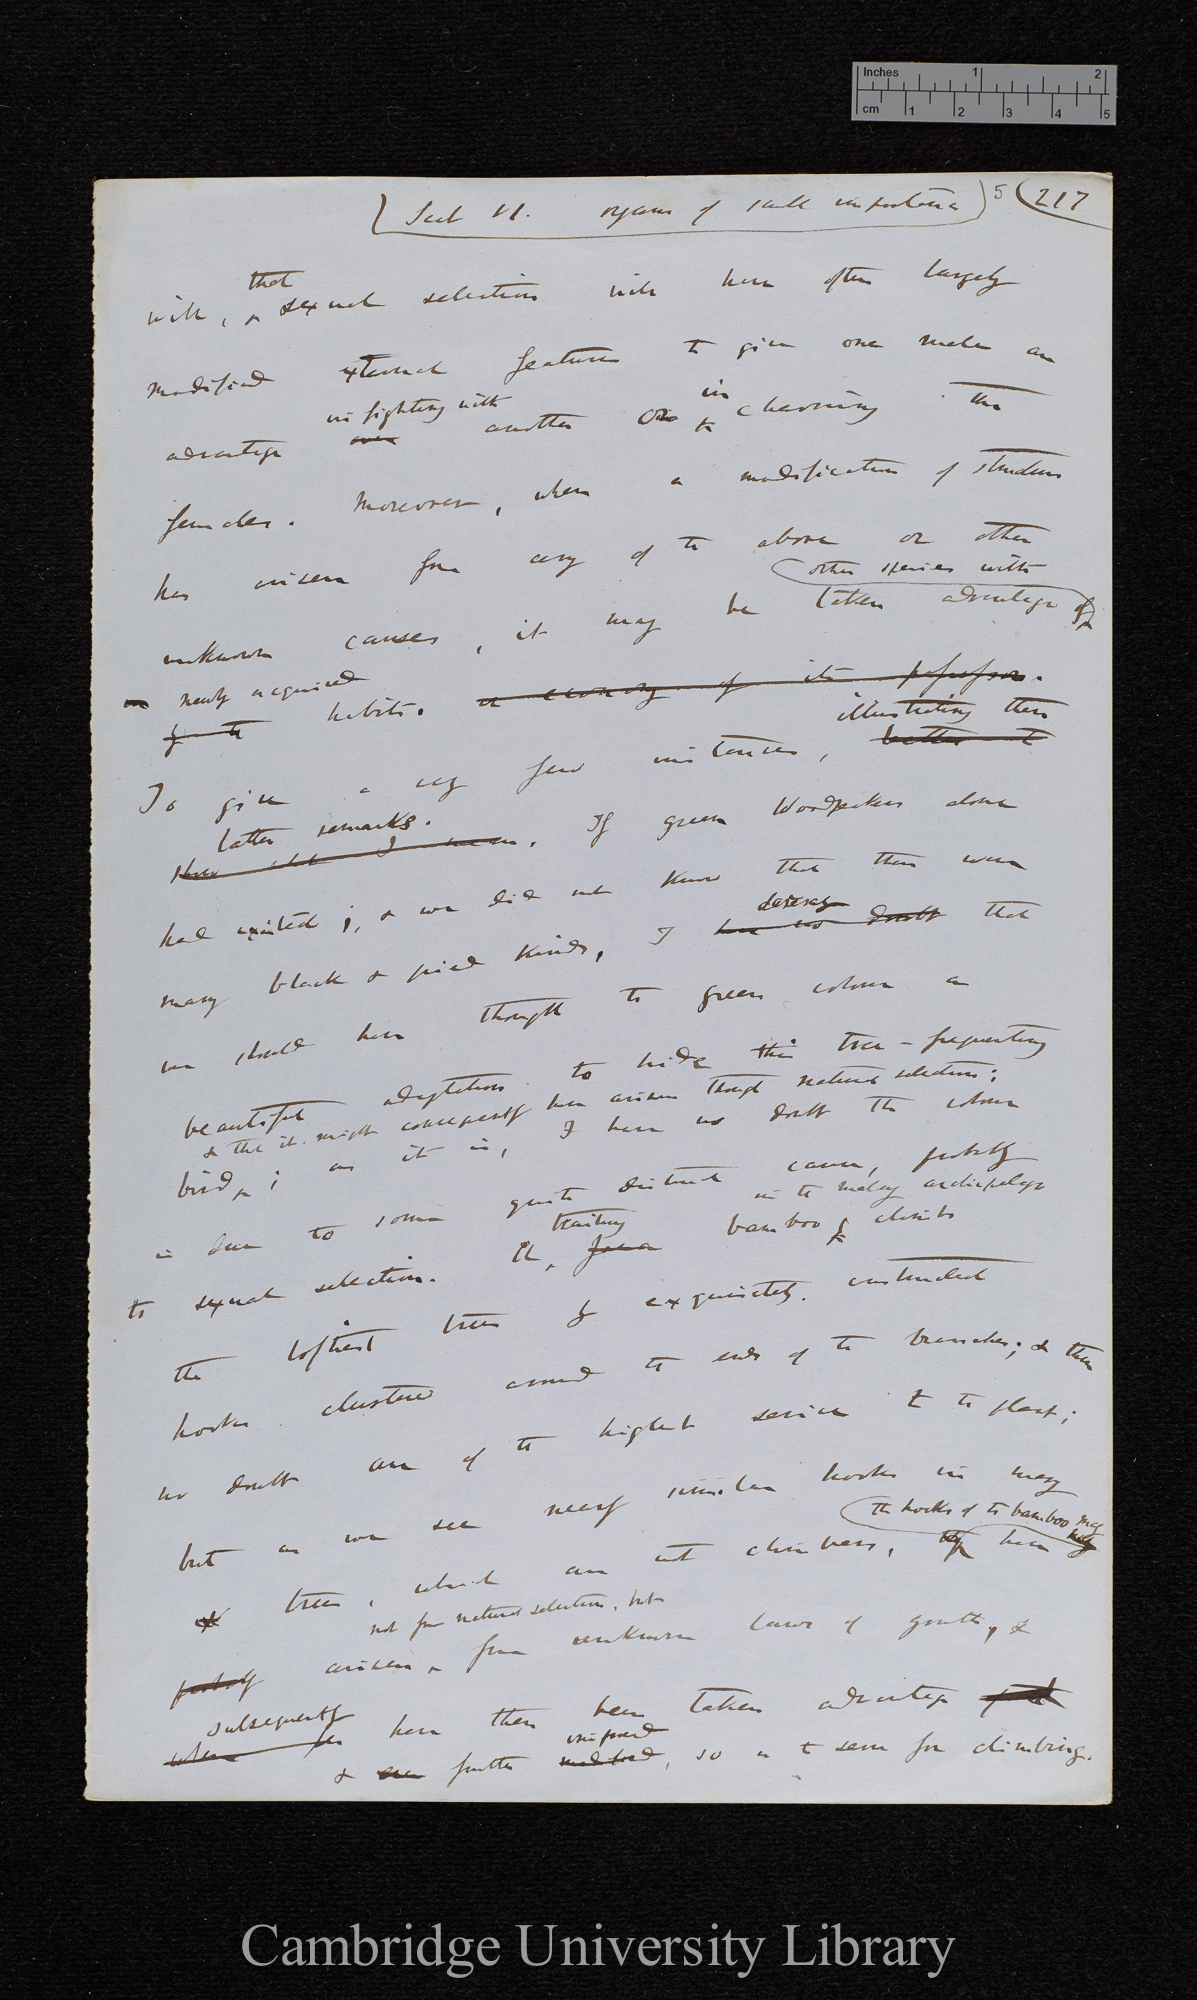 Inches 1 2
cm 1 2 3 4 5
(Sect VI. organs of small importance) 5 (217
that
will, & sexual selection will have often largely
modified external features to give one male an
in fighting with in
advantage over another or to charming the
females. Moreover, when a modification of structure
has arisen from any of the above or other
other species with
unknown causes, it may be taken advantage of
newly acquired
habits. economy of its
illustrating these
To give a very few instances, better what
latter remarks.
show what I mean. If green Woodpeckers alone
had existed, & we did not know that there were
daresay
many black & pied kinds, I have no doubt that
we should have thought the green colour a
beautiful adaptation to hide this tree-frequenting
& that it might consequently have arisen through natural selection;
bird; as it is, I have no doubt the colour
is due to some quite distinct cause, probably
in the malay archipelago
trailing
to sexual selection. A Java bamboo climbs
the loftiest trees by exquisitely constructed
hooks clustered around the ends of the branches; & these
no doubt are of the highest service to the plant;
but as we see nearly similar hooks in many
the hooks of the bamboo may
trees, which are not climbers, they have may
not from natural selection, but
probably arisen from unknown laws of growth, &
subsequently
when have then been taken advantage
improved
& even further modified, so as to serve for climbing.
Cambridge University Library